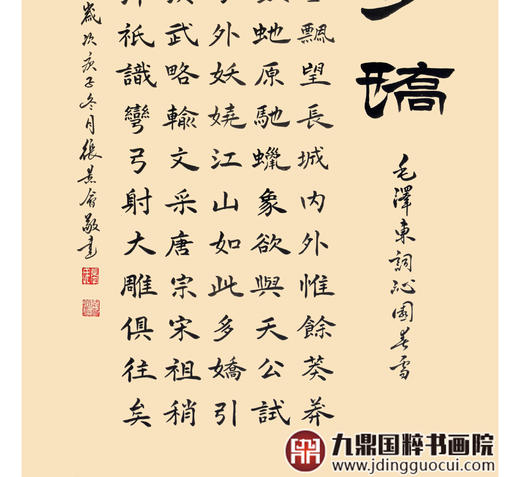 嬌
毛澤東詞沁園春雪
飄望長城内外惟餘莽莽
虵原馳蠟象欲與天公試
外妖嬈江山如此多嬌引
武略輸文采唐宗宋祖稍
祇識彎弓射大雕俱往矣
歲次庚子冬月張會敬書
九鼎国粹书画院
www.jdingguocui.com